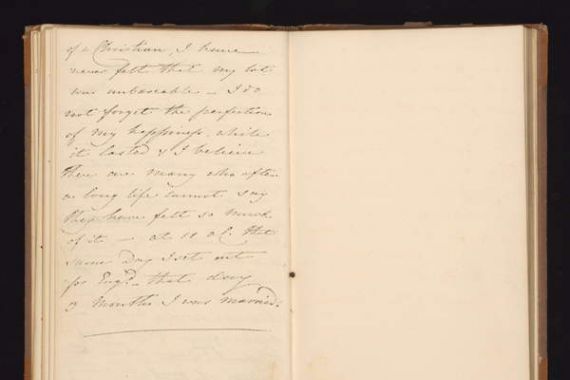 of a Christian, I have
never felt that my lot
was unbearable — I do
not forget the perfection
of my happiness, while
it lasted & I believe
there are many who after
a long life cannot say
they have felt so much
of it — at 11 o C. that
same Day I set out
for Engd. that day
3 months I was married.